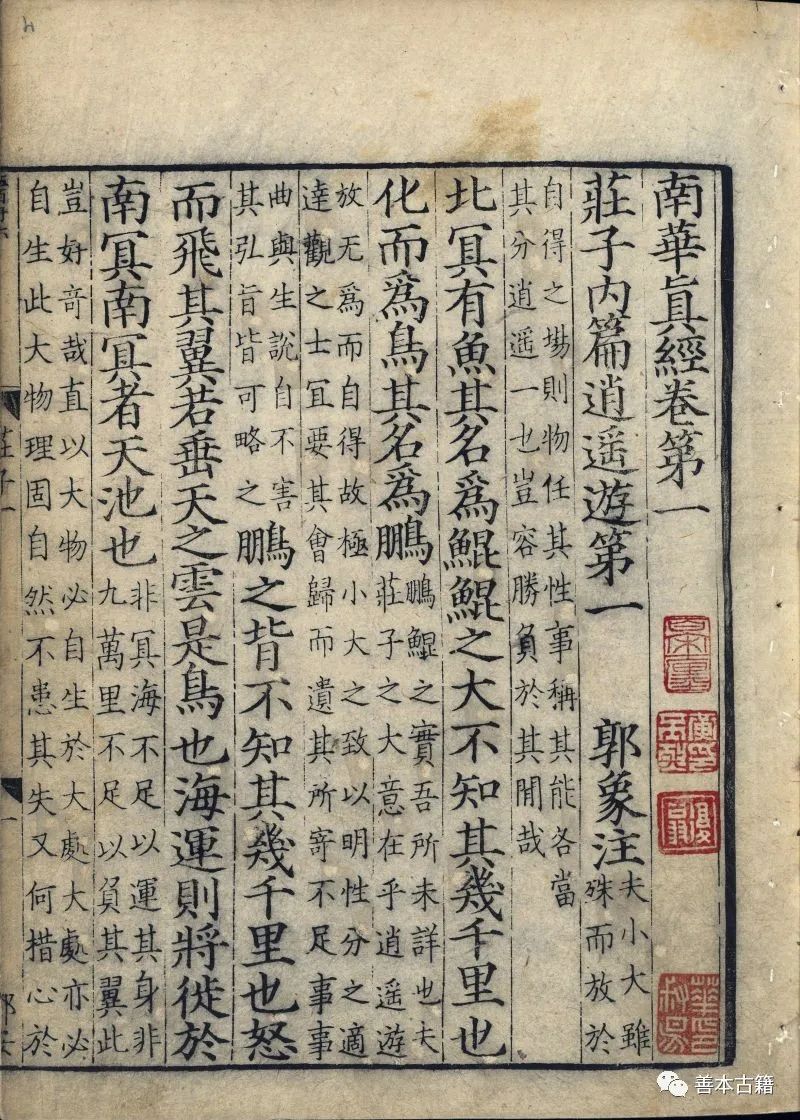 南華眞經卷第一
莊子内篇逍遥遊第一 郭象注 夫小大雖
殊而放於
自得之場則物任其性事稱其能各當
其分逍遥一也豈容勝負於其閒哉
北冥有魚其名爲鯤鯤之大不知其幾千里也
化而爲鳥其名爲鵬 鵬鯤之實吾所未詳也夫
莊子之大意在乎逍遥遊
放无爲而自得故極小大之致以明性分之適
達觀之士冝要其會歸而遺其所寄不足事事
曲與生說自不害
其弘旨皆可略之 鵬之背不知其幾千里也怒
而飛其翼若垂天之雲是鳥也海運則將徙於
南冥南冥者天池也 非冥海不足以運其身非
九萬里不足以負其翼此
豈好奇哉直以大物必自生於大處大處亦必
自生此大物理固自然不患其失又何措心於
莊子一
一
善本古籍